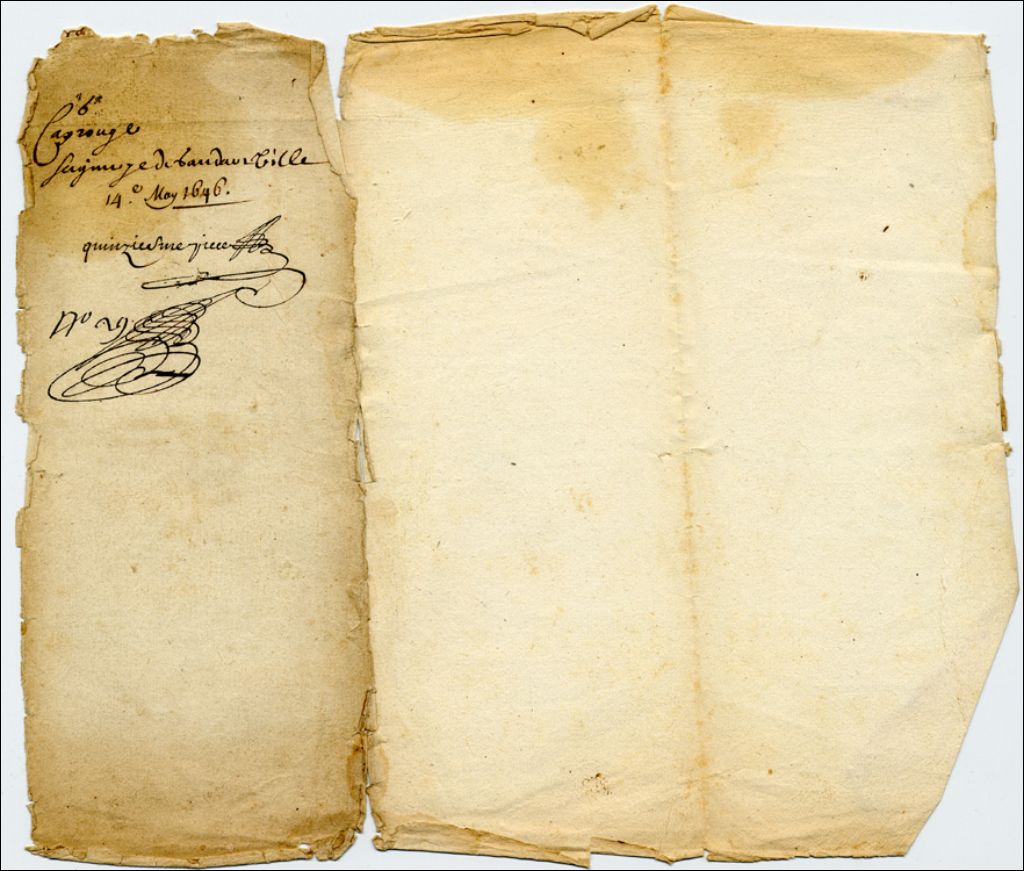 6e
Caprouge
Seigneurye de baudrouville
14.e May 1646.
quinziesme piece
No 29